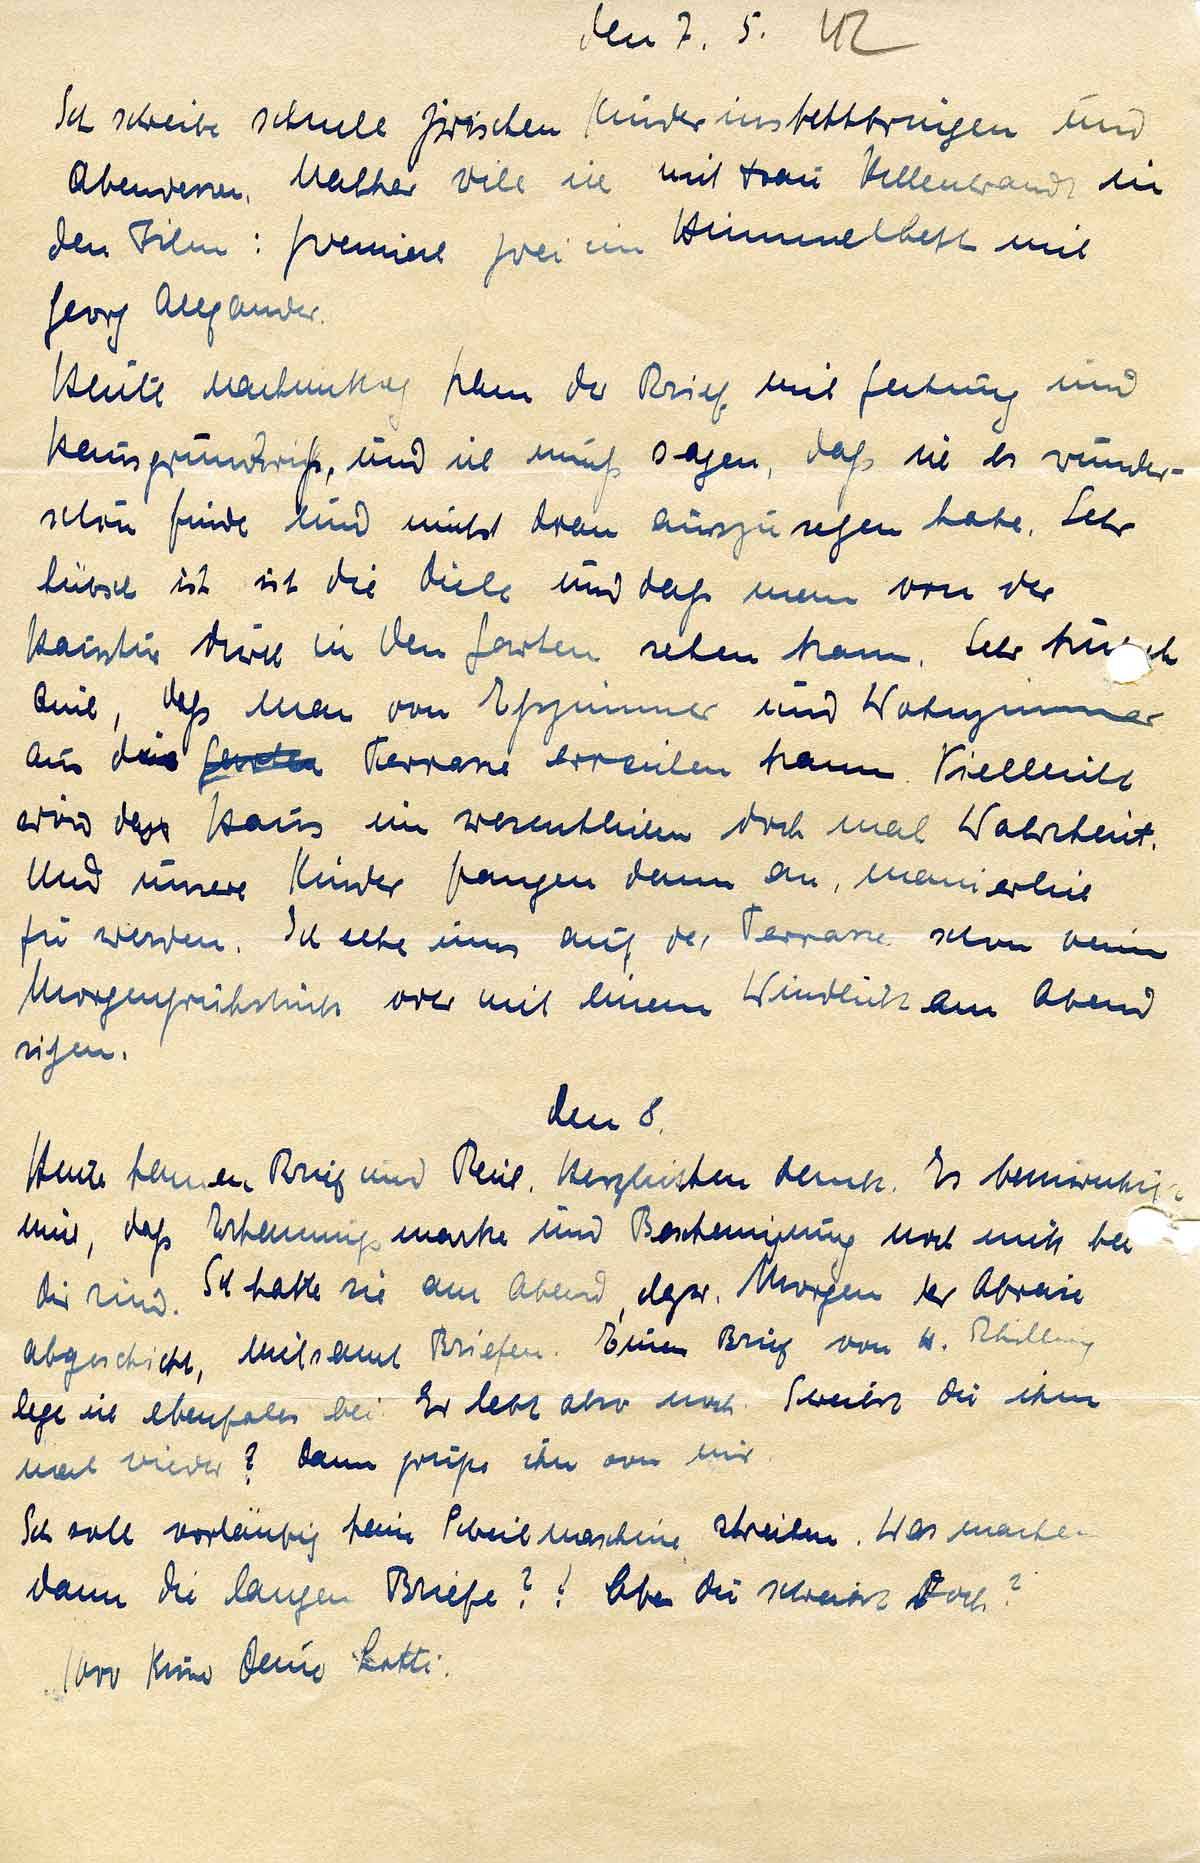 den 7. 5. 42
Ich schreibe schnell zwischen Kinderinsbettbringen und
Abendessen. Nachher will ich mit Frau Hillenbrandt in
den Film: zweimal zwei im Himmelbett mit
Georg Alexander.
Heute Nachmittag kam der Brief mit Zeitung und
Hausgrundriß, und ich muß sagen, daß ich es wunder-
schön finde und nichts dran auszusetzen habe. Sehr
hübsch ist ist die Diele und daß man von der
Haustür durch in den Garten sehen kann. Sehr hübsch
auch, daß man von Eßzimmer und Wohnzimmer
aus die Garten Terrasse erreichen kann. Vielleicht
wird das Haus im wesentlichen doch mal Wahrheit.
Und unsere Kinder fangen dann an, manierlich
zu werden. Ich sehe uns auf der Terrasse schon beim
Morgenfrühstück oder mit einem Windlicht am Abend
sitzen.
den 8.
Heute kamen Brief und Herzlichsten Dank. Es beunruhigt
mich, daß Erkennungsmarke und Bescheinigung noch nicht bei
dir sind. Ich hatte sie am Abend, Morgen der Abreise
abgeschickt, mitsamt Briefen. Einen Brief von H. Schilling
lege ich ebenfalls bei. Er lebt also noch. Schreibst du ihm
mal wieder? Dann grüße ihn von mir.
Ich soll vorläufig kein Schreibmaschine schreiben. Was machen
dann die langen Briefe?! Aber du schreibst doch?
1000 Küsse Deine Lotti.